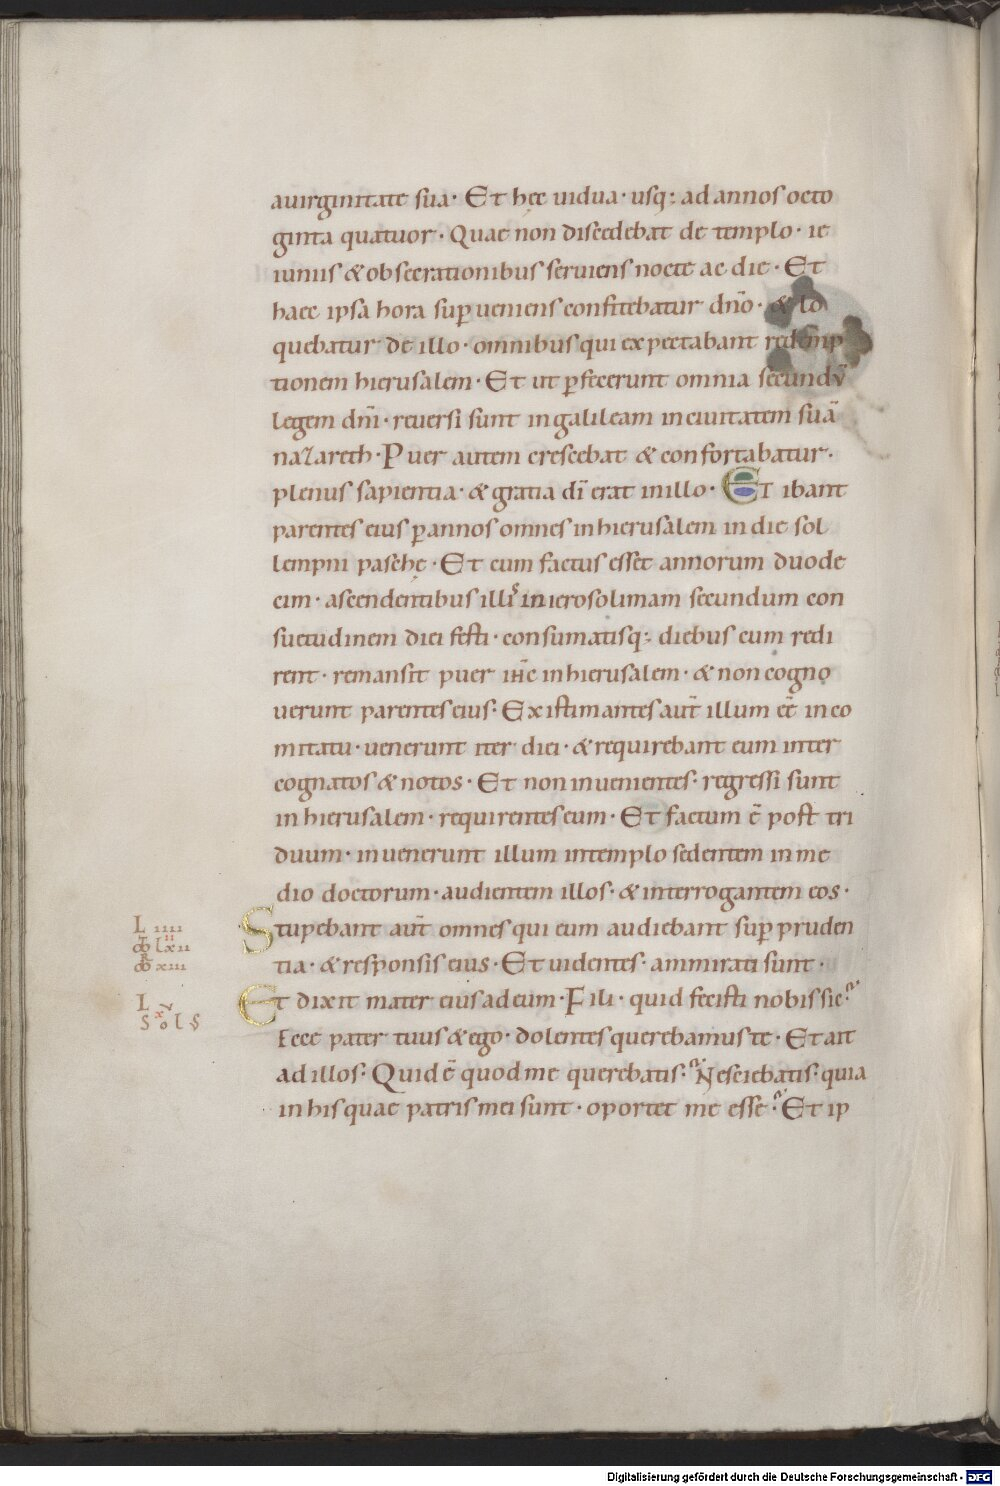 auirginitate sua· Et hęc uidua· usq; ad annos octo
ginta quatuor· Quae non discedebat de templo· ie
iuniis & obsecrationibus seruiens nocte ac die· Et
haec ipsa hora sup̄ueniens confitebatur dn̄o· & lo
quebatur de illo· omnibus qui expectabant redemp
tionem hierusalem· Et ut p̄fecerunt omnia secundū
legem dn̄i· reuersi sunt in galileam in ciuitatem suā
nazareth· Puer autem crescebat & confortabatur·
plenus sapientia· & gratia dī erat in illo· Et ibant
parentes eius p̄ annos omnes in hierusalem in die sol
lempni paschę· Et cum factus esset annorum duode
cim· ascendentibus illis in ierosolimam secundum con
suetudinem diei festi· consumatisq; diebus cum redi
rent· remansit puer ih̄c in hierusalem· & non cogno
uerunt parentes eius· Existimantes aut̄ illum eē in co
mitatu· uenerunt iter diei· & requirebant eum inter
cognatos & notos· Et non inuenientes· regressi sunt
in hierusalem· requirentes eum· Et factum ē post tri
duum· inuenerunt illum intemplo sedentem in me
dio doctorum· audientem illos· & interrogantem eos·
Stupebant aut̄ omnes qui eum audiebant sup̄ pruden
tia· & responsis eius· Et uidentes· ammirati sunt·
Et dixit mater eius ad eum· Fili· quid fecisti nobis sic?
Ecce pater tuus & ego· dolentes querebamus te· Et ait
ad illos· Quid ē quod me querebatis? Nesciebatis· quia
in his quae patris mei sunt· oportet me esse? Et ip
L iiii
xiii
L
Digitalisierung gefördert durch die Deutsche Forschungsgemeinschaft - DFG